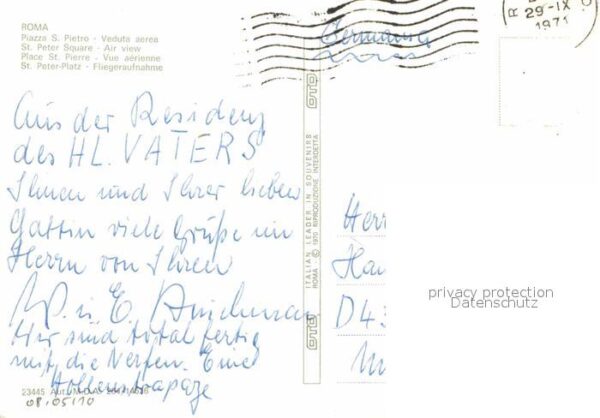 ROMA
Piazza S. Pietro - Veduta aerea
St. Peter Square - Air view
Place St. Pierre - Vue aérienne
St. Peter-Platz - Fliegeraufnahme
Germania
29-IX
1971
Aus der Residenz
des HL. VATERS
Ihnen und Ihrer lieben
Gattin viele Grüße im
Herrn von Ihren
W. u. E.
Wir sind total fertig
mit die Nerfen. Eine
Höllenstrapaze
23445 Aut.
08.05110
OTO
ITALIAN LEADER IN SOUVENIRS
ROMA © 1970 RIPRODUZIONE INTERDETTA
OTO
Herr
Ha
D43
privacy protection
Datenschutz